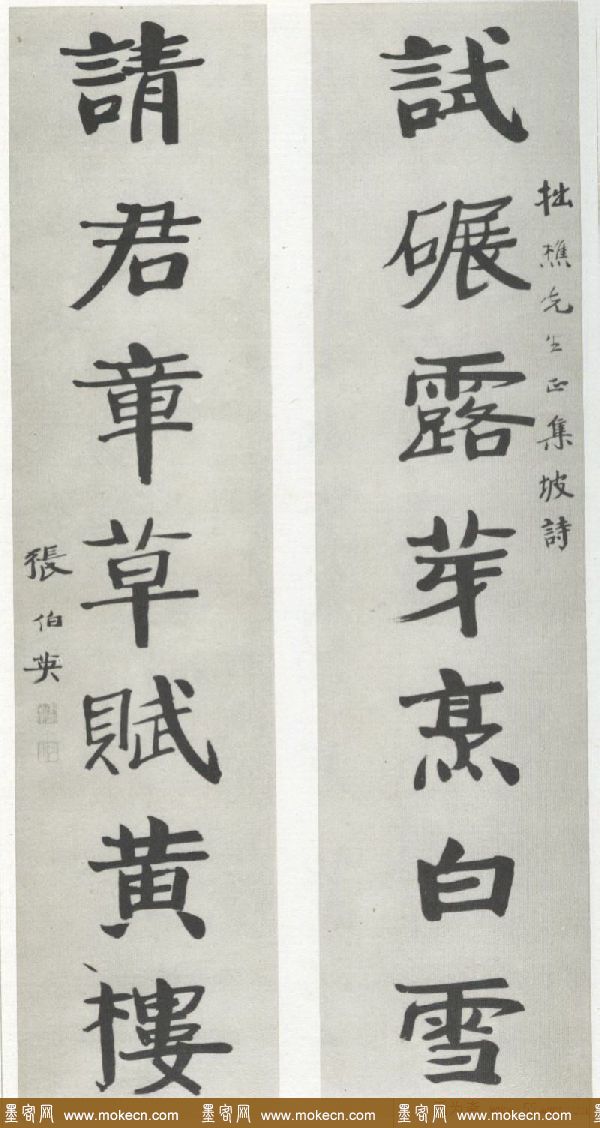 拙樵先生正集坡詩
試碾露芽烹白雪
請君章草賦黃樓
張伯英
墨客网 www.mokecn.com 墨客网 www.mokecn.com 墨客网 www.mokecn.com 墨客网